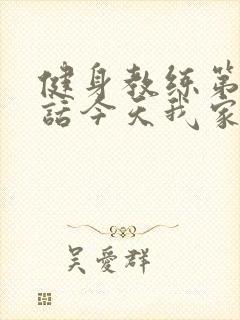 健身教练第
話今天我家
吴愛群